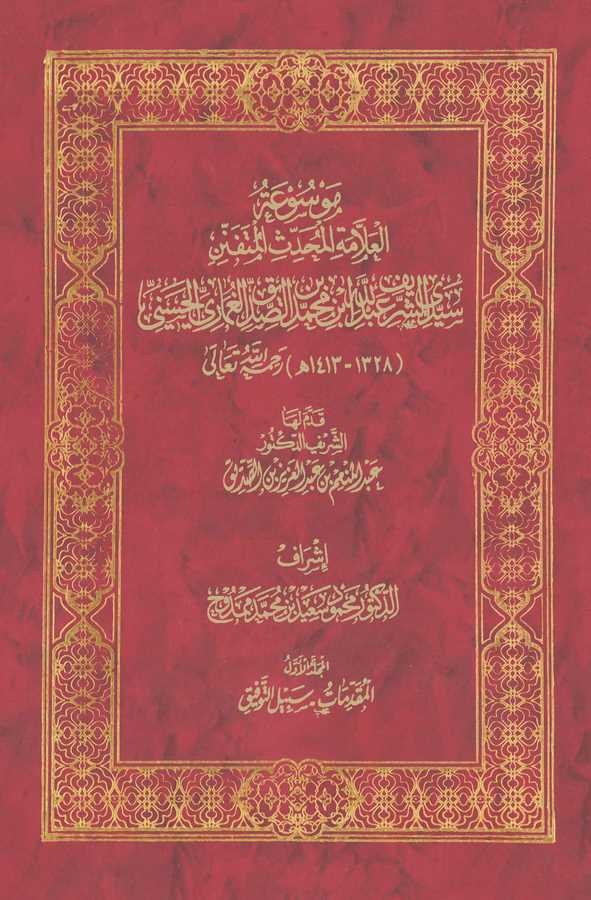 مَوْسُوْعَةُ
العَلَّامَةِ المُحَدِّثِ المُتَفَنِّنِ
سَيِّدِي الشَّرِيف عَبْد اللَّه ابْن مُحَمَّد بْن الصِّدِّيق الغُمَارِي الحَسَنِي
(١٣٢٨-١٤١٣هـ) رَحِمَهُ اللَّهُ تَعَالَى
قَدَّمَ لَهَا
الشَّرِيف الدُّكْتُوْر
عَبْد المُنْعِم بْن عَبْد العَزِيْز بْن الصِّدِّيق
إِشْرَاف
الدُّكْتُوْر مَحْمُوْد سَعِيْد بْن مُحَمَّد مَمْدُوْح
المُجَلَّدُ الأَوَّلُ
المُقَدِّمَات - سَبِيْل التَّوْفِيْق